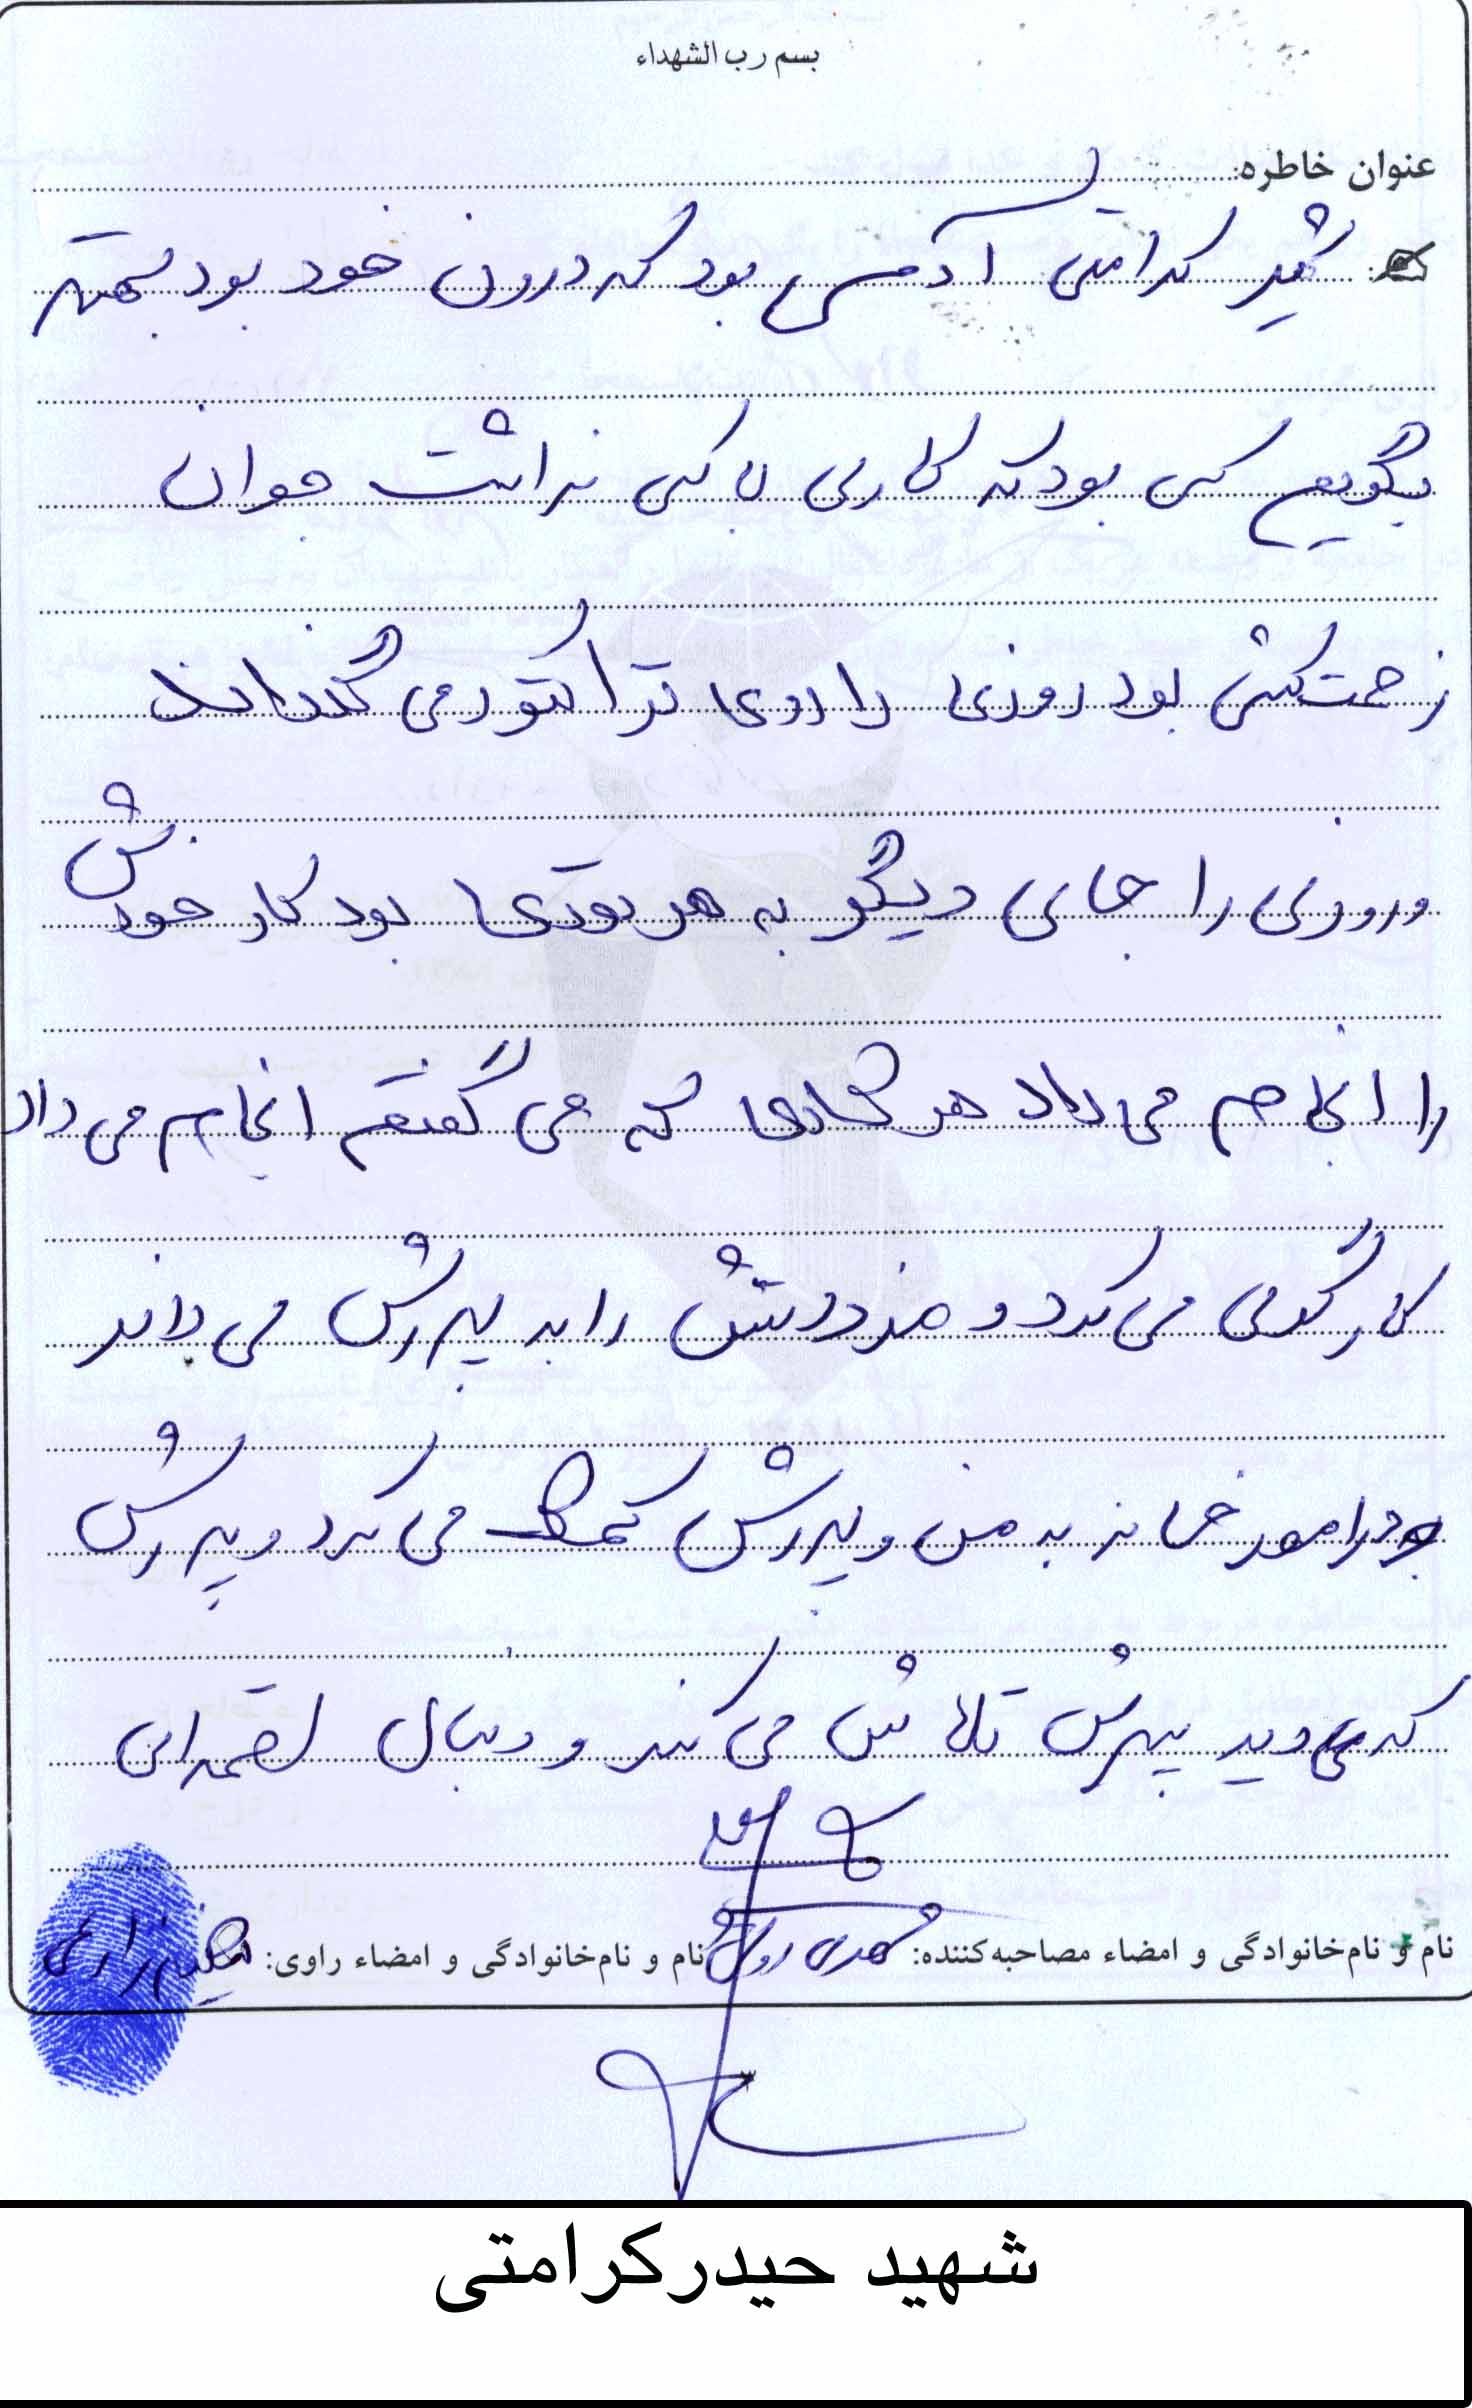 بسم رب الشهداء
عنوان خاطره:
شهید کرامتی آدمی بود که درون خود بود بهتر
بگویم کسی بود که کاری با کسی نداشت جوان
زحمت کش بود روزی را روی تراکتور می گذراند
و روزی را جای دیگر به هر صورتی بود کار خودش
را انجام می داد هر کاری که می گفتم انجام می داد
کارگری می کرد و مزدش را به پدرش می داد
در امور خانه به من و پدرش کمک می کرد و پدرش
که می دید پسرش تلاش می کند و دنبال لقمه ای
نام و نام‌خانوادگی و امضاء مصاحبه‌کننده: مهدی نام و نام‌خانوادگی و امضاء راوی:
شهید حیدرکرامتی